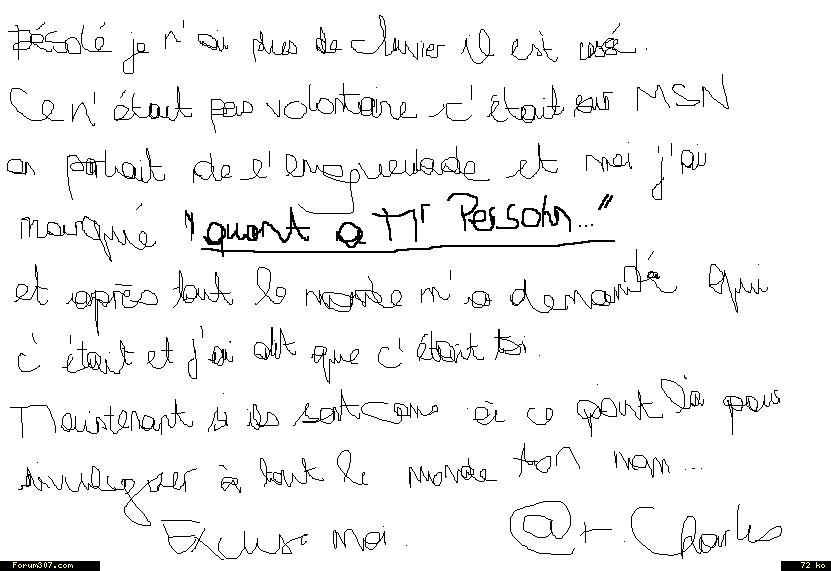 Désolé je n'ai plus de clavier il est usé.
Ce n'était pas volontaire c'était sur MSN
on parlait de l'engueulade et moi j'ai
marqué "quant a Mr Pessohn..."
et après tout le monde m'a demandé qui
c'était et j'ai dit que c'était toi.
Maintenant si ils sont cons à ce point là pour
divulguer à tout le monde ton nom...
Excuse moi. @+ Charles
Forum307.com 72 ko